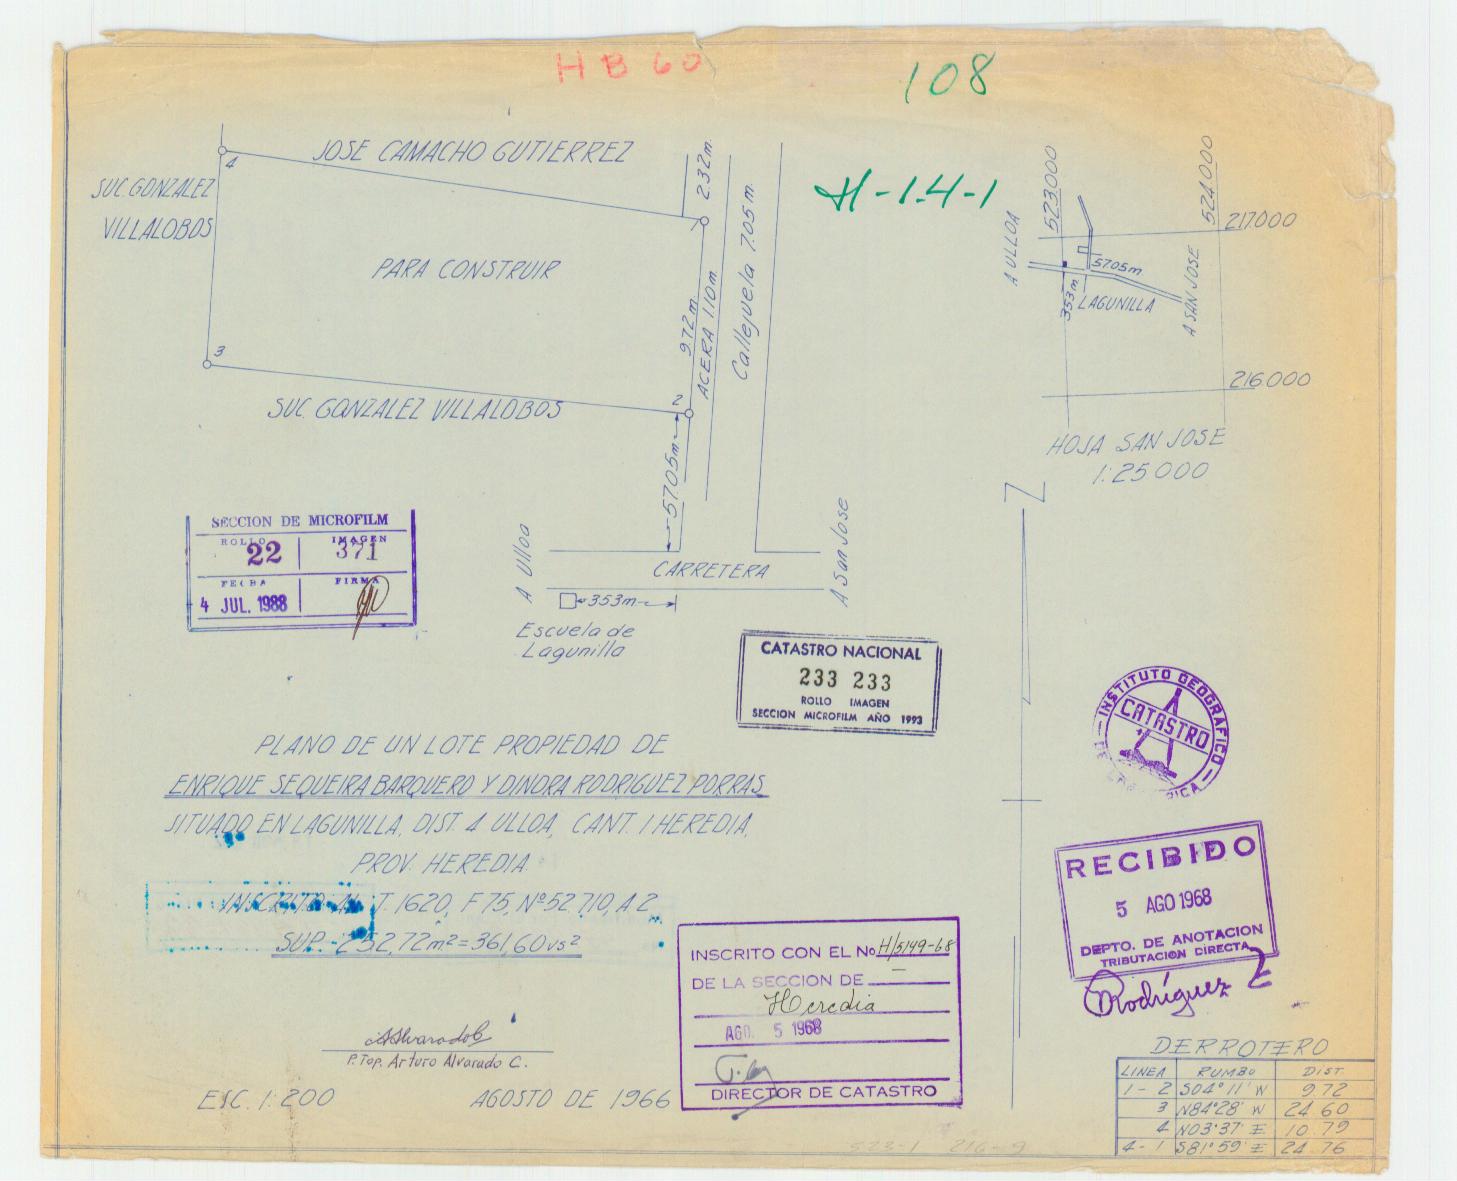 HB 60
108
H-1.4-1
JOSE CAMACHO GUTIERREZ
SUC. GONZALEZ
VILLALOBOS
4
1
3
2
PARA CONSTRUIR
SUC. GONZALEZ VILLALOBOS
2.32m
9.72m
ACERA 1.10m
Callejuela 7.05m
57.05m
A Ulloa
CARRETERA
A San Jose
353m
Escuela de
Lagunilla
523.000
524.000
217.000
216.000
A ULLOA
57.05m
353m
LAGUNILLA
A SAN JOSE
HOJA SAN JOSE
1:25000
SECCION DE MICROFILM
ROLLO IMAGEN
22 371
FECHA FIRMA
4 JUL. 1988
CATASTRO NACIONAL
233 233
ROLLO IMAGEN
SECCION MICROFILM AÑO 1993
INSTITUTO GEOGRÁFICO
CATASTRO
PLANO DE UN LOTE PROPIEDAD DE
ENRIQUE SEQUEIRA BARQUERO Y DINORA RODRIGUEZ PORRAS
SITUADO EN LAGUNILLA, DIST. 4 ULLOA, CANT. 1 HEREDIA,
PROV. HEREDIA
INSCRITO AL T. 1620, F 75, Nº 52710, A.2
SUP.- 252,72m²=361,60vs²
RECIBIDO
5 AGO 1968
DEPTO. DE ANOTACION
TRIBUTACION DIRECTA
Rodríguez
INSCRITO CON EL No H/5149-68
DE LA SECCION DE
Heredia
AGO. 5 1968
DIRECTOR DE CATASTRO
AAlvaradoC
P. Top. Arturo Alvarado C.
ESC. 1:200
AGOSTO DE 1966
DERROTERO
LINEA RUMBO DIST.
1-2 S04°11' W 9.72
3 N84°28' W 24.60
4 N03°37' E 10.79
4-1 S81°59' E 24.76
523-1 216-9